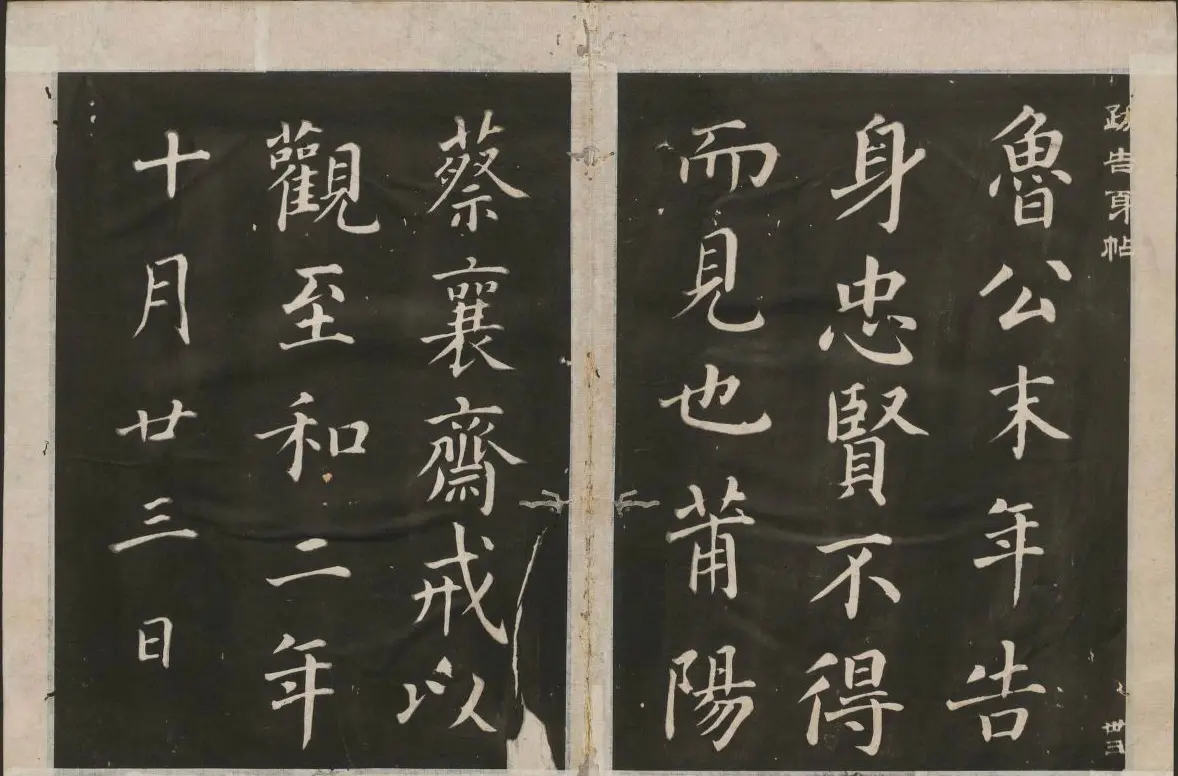 跋告身帖
魯公末年告
身忠賢不得
而見也莆陽
蔡襄齋戒以
觀至和二年
十月廿三日